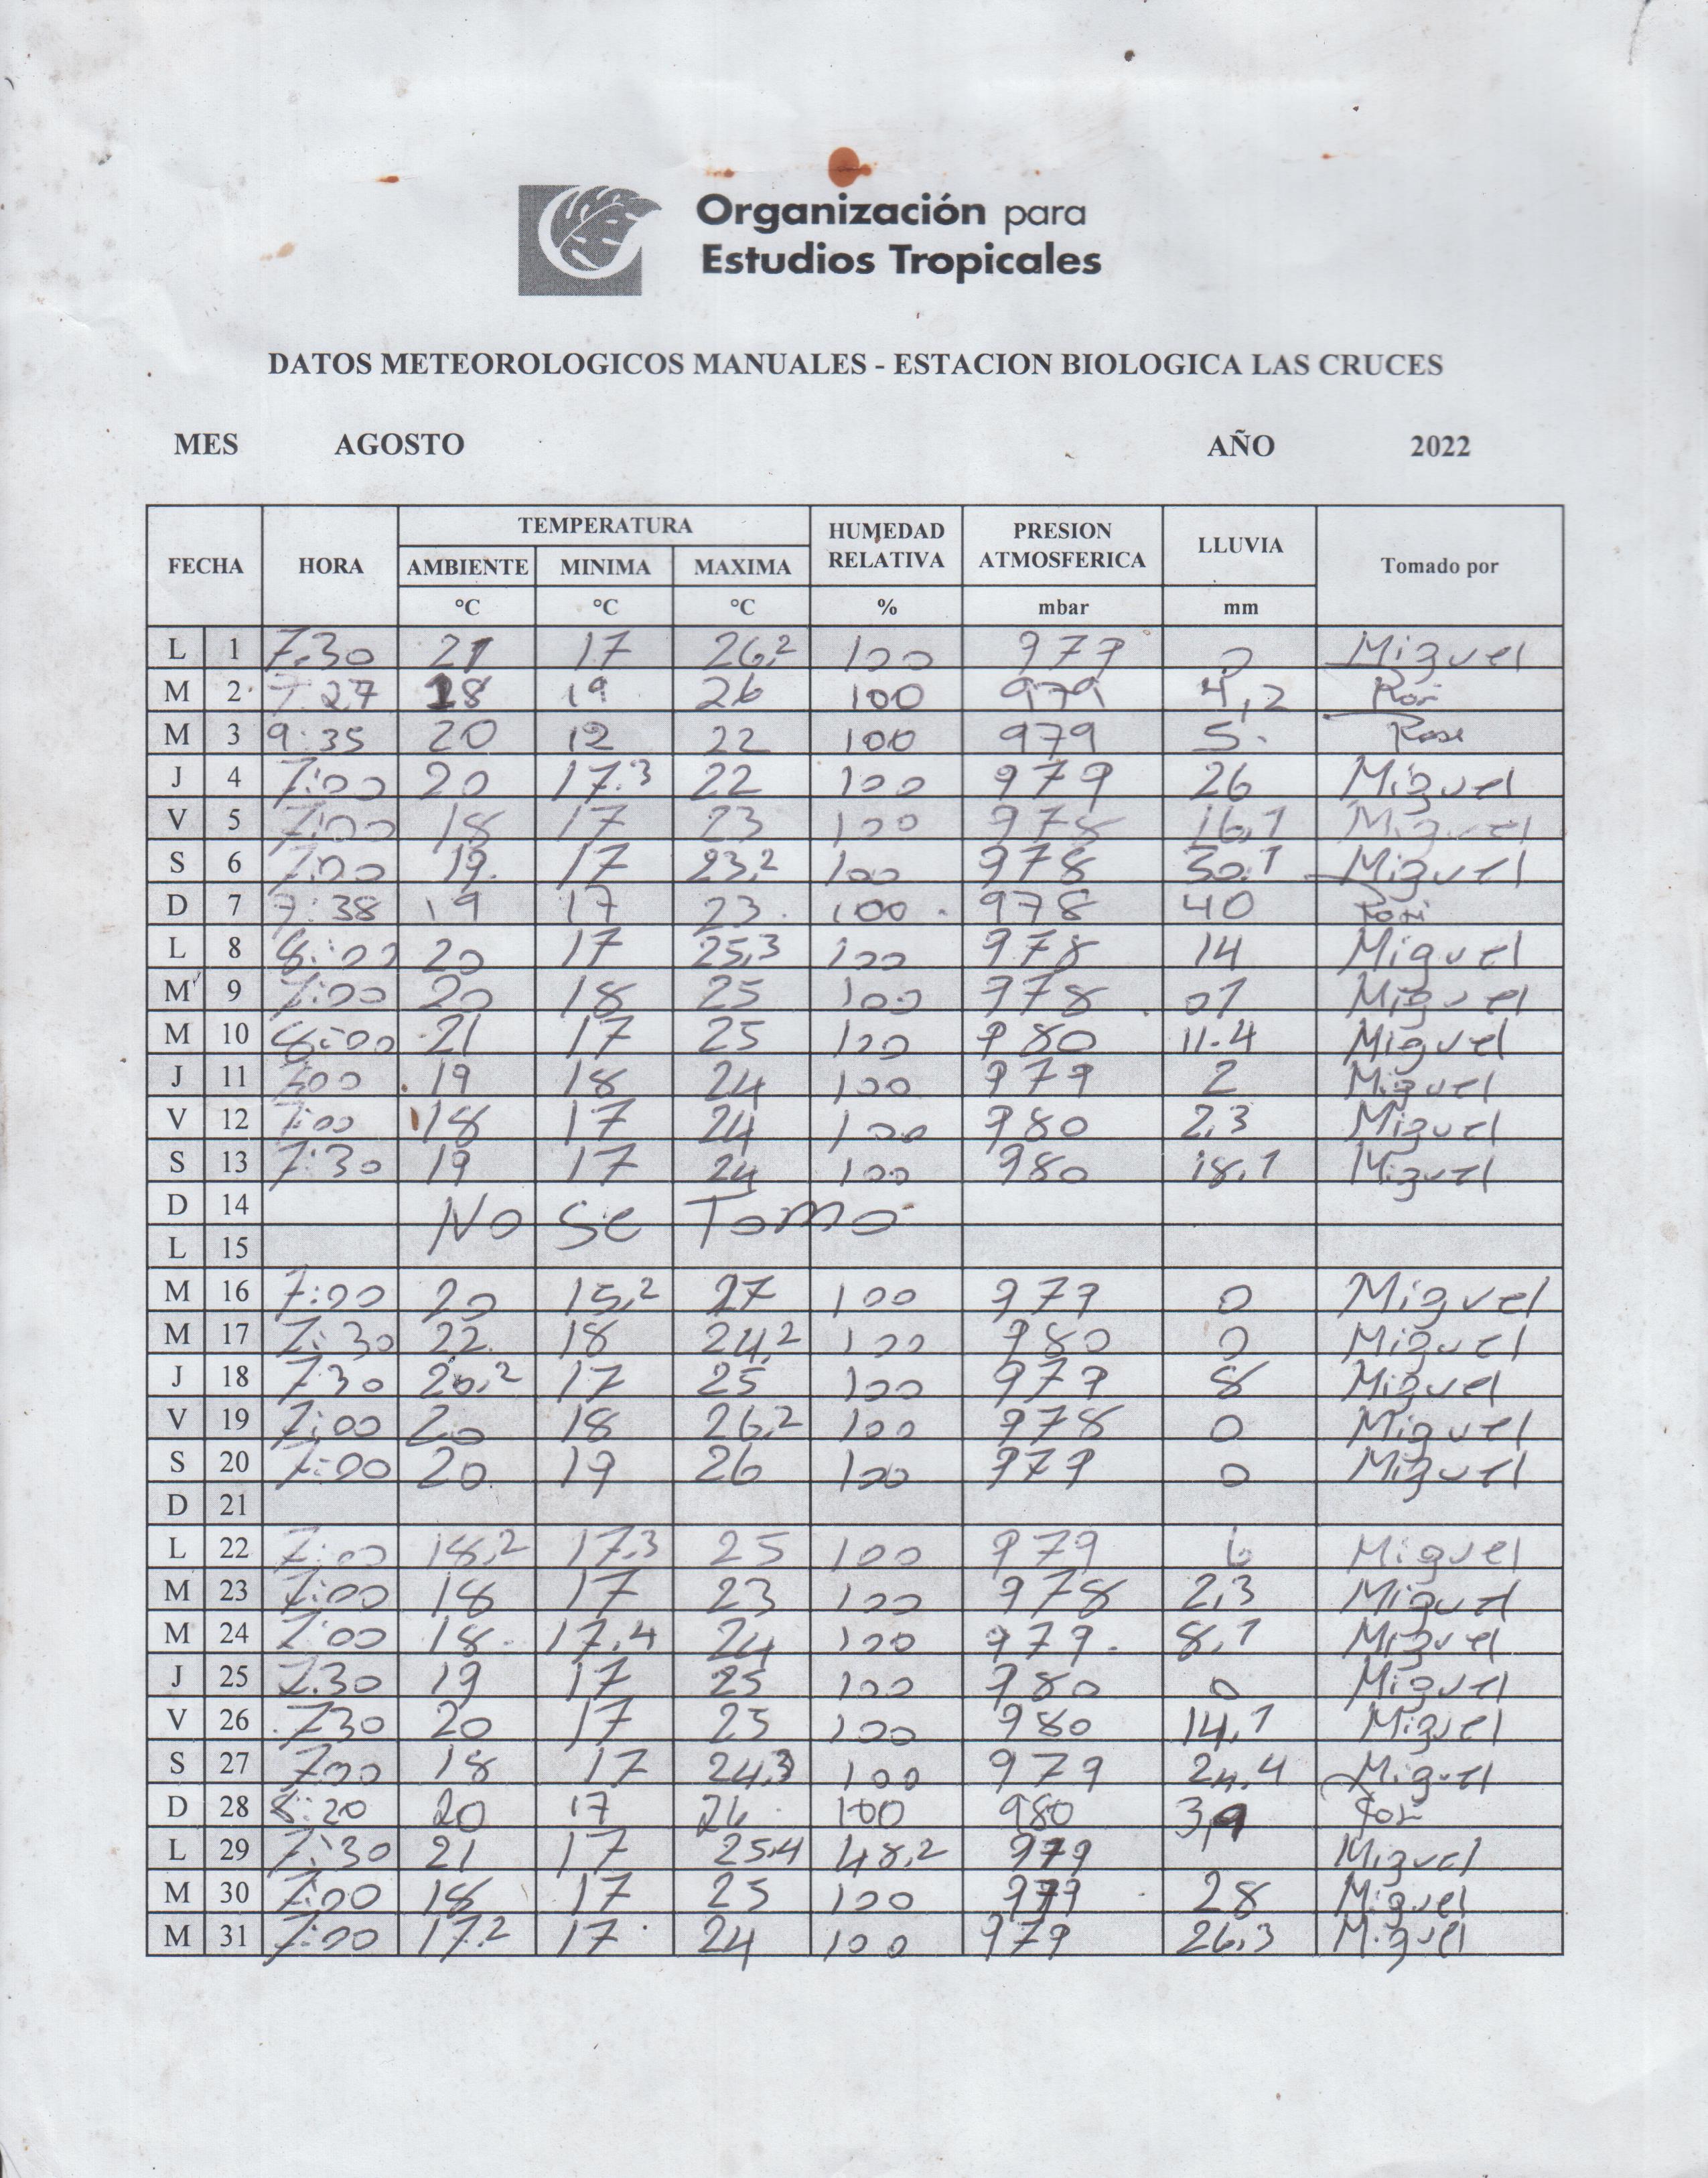 Organización para
Estudios Tropicales
DATOS METEOROLOGICOS MANUALES - ESTACION BIOLOGICA LAS CRUCES
MES AGOSTO AÑO 2022
FECHA HORA TEMPERATURA HUMEDAD RELATIVA PRESION ATMOSFERICA LLUVIA Tomado por
AMBIENTE MINIMA MAXIMA
°C °C °C % mbar mm
L 1 7:30 21 17 26,2 100 979 0 Miguel
M 2 7:27 18 19 26 100 979 4,2
M 3 9:35 20 12 22 100 979 5.
J 4 7:00 20 17.3 22 100 979 26 Miguel
V 5 7:00 18 17 23 100 978 16,1 Miguel
S 6 7:00 19. 17 23,2 100 978 30.1 Miguel
D 7 7:38 19 17 23 100 978 40
L 8 8:00 20 17 25,3 100 978 14 Miguel
M 9 7:00 20 18 25 100 978 01 Miguel
M 10 8:00 21 17 25 100 980 11.4 Miguel
J 11 7:00 19 18 24 100 979 2 Miguel
V 12 7:00 18 17 24 100 980 2,3 Miguel
S 13 7:30 19 17 24 100 980 18,1 Miguel
D 14 No Se Tomo
L 15
M 16 7:00 20 15,2 27 100 979 0 Miguel
M 17 7:30 22 18 24,2 100 980 0 Miguel
J 18 7:30 20,2 17 25 100 979 8 Miguel
V 19 7:00 20 18 26,2 100 978 0 Miguel
S 20 7:00 20 19 26 100 979 0 Miguel
D 21
L 22 7:00 18,2 17,3 25 100 979 6 Miguel
M 23 7:00 18 17 23 100 978 2,3 Miguel
M 24 7:00 18 17,4 24 100 979 8,1 Miguel
J 25 7:30 19 17 25 100 980 0 Miguel
V 26 7:30 20 17 25 100 980 14,1 Miguel
S 27 7:00 18 17 24,3 100 979 24,4 Miguel
D 28 8:20 20 17 26 100 980 3,9
L 29 7:30 21 17 25,4 48,2 979 Miguel
M 30 7:00 18 17 25 100 979 28 Miguel
M 31 7:00 17,2 17 24 100 979 26,3 Miguel